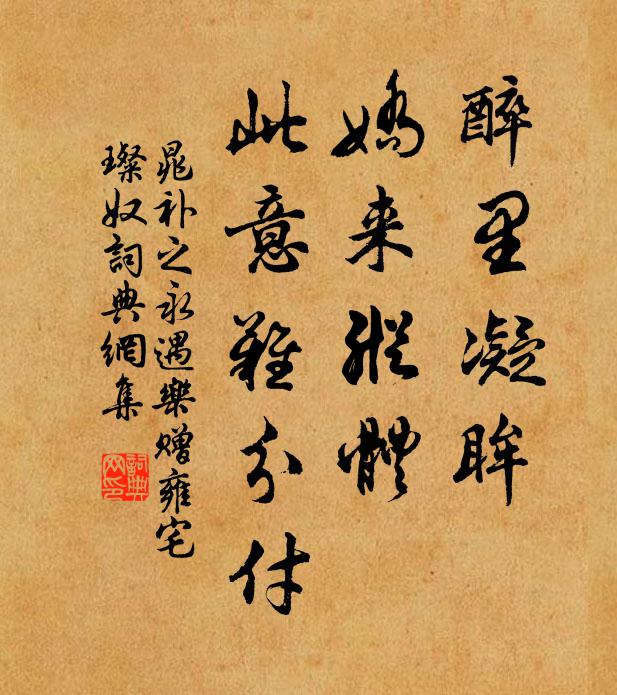 醉里凝眸
嬌来縱體
此意難分付
晁补之永遇樂赠雍宅
璨奴詞典網集
詞典网印